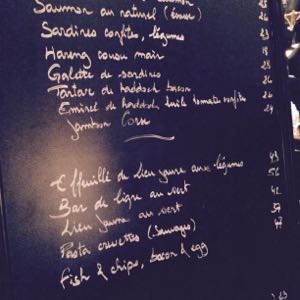 Saumon au naturel
Sardines confites, légumes
Hareng 
Galette de sardines 26
Tartar de haddock bacon 26
Émincé de haddock, tomates confites 26
Jambon Corse 24
Effeuillé de lieu jaune aux légumes 43
Bar de ligne au vert 56
Lieu jaune au vert 42
Pasta crevettes (Sauvages)
Fish & chips, bacon & egg 47